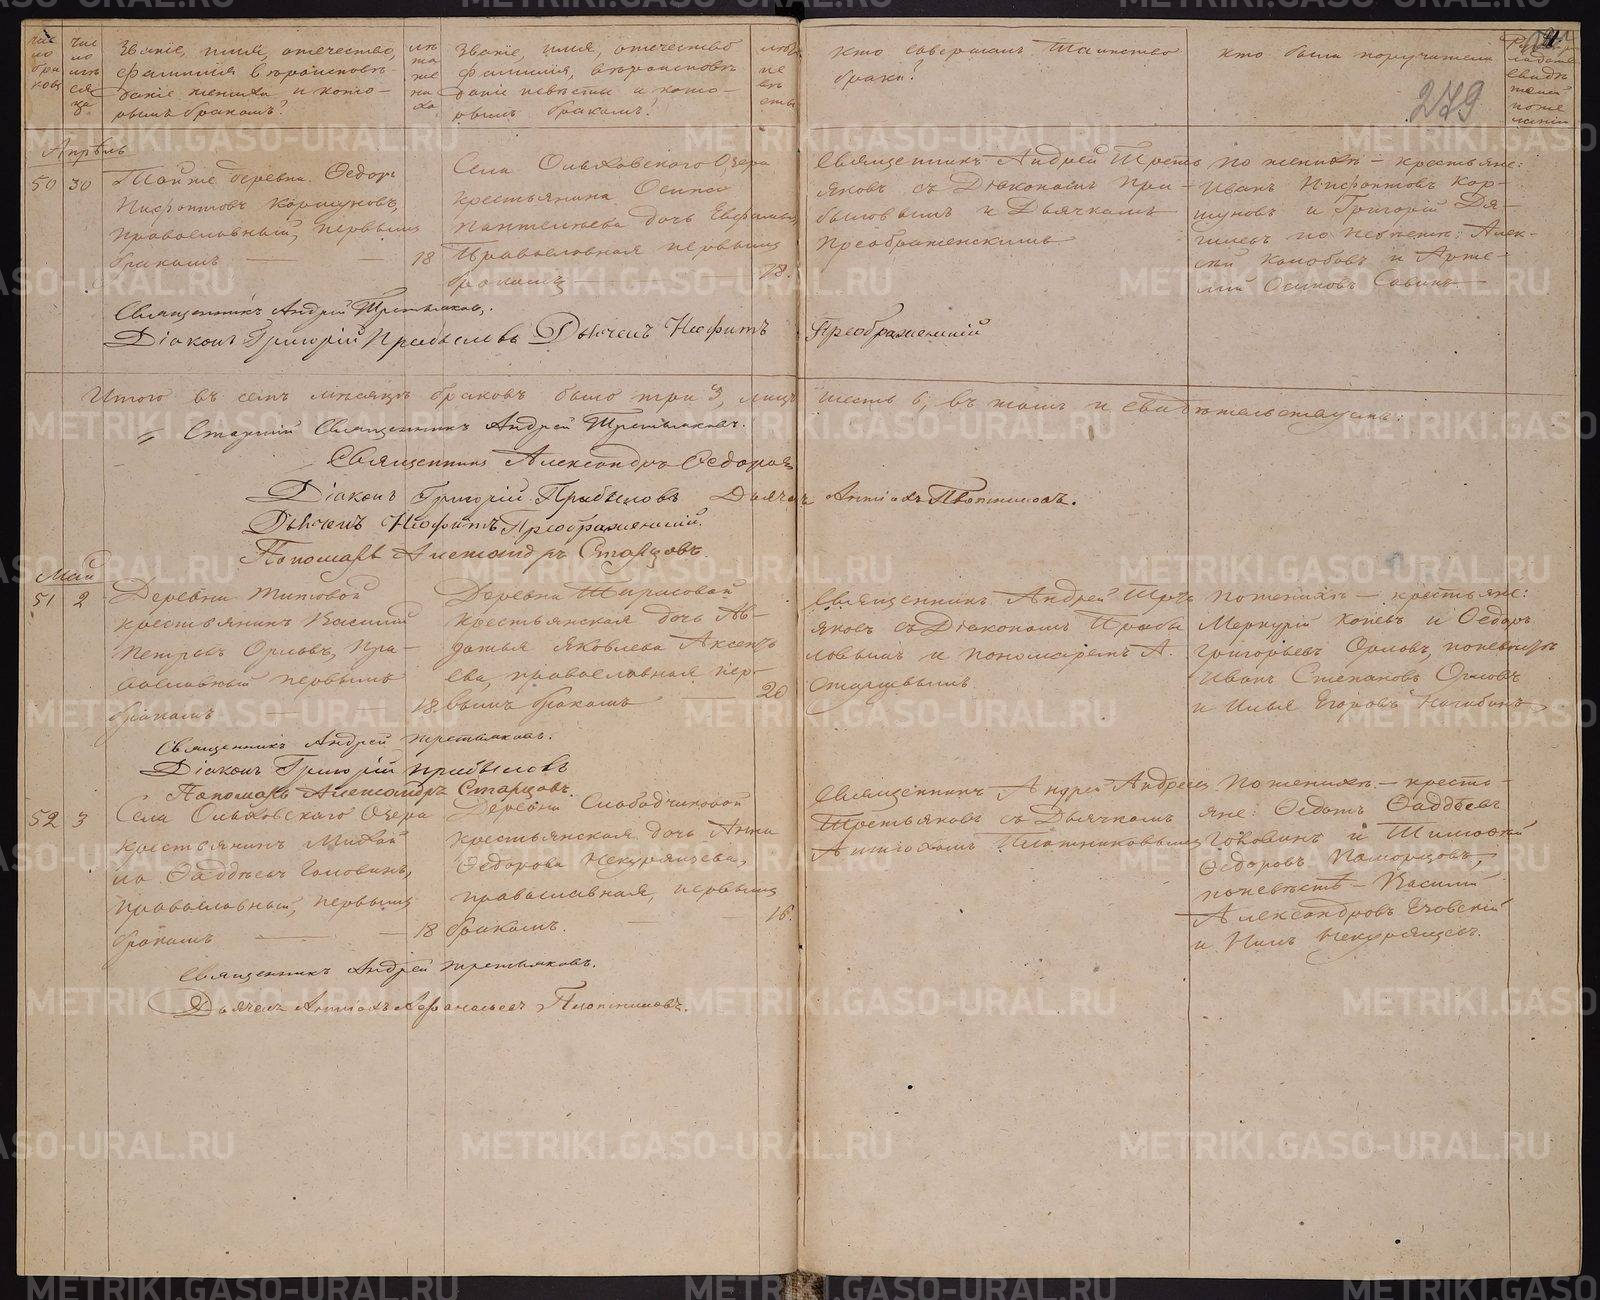 Число браковъ
Число мѣсяца
Званіе, имя, отчество,
фамилія и вѣроисповѣ-
даніе жениха и кото-
рымъ бракомъ?
лѣта жениха
Званіе, имя, отчество
фамилія, вѣроисповѣ-
даніе невѣсты и кото-
рымъ бракомъ?
лѣта невѣсты
Кто совершалъ Таинство
брака?
Кто были поручители
279
Апрѣль
50 30
Той же деревни Ѳедоръ
Нифонтовъ Коршуновъ,
православный, первымъ
бракомъ — — 18
Села Ольховского Озера
крестьянина Осипа
Пантелѣева дочь Евфимья,
Православная первымъ
бракомъ — 18.
Священникъ Андрей Треть
яковъ съ Діакономъ При-
быловымъ и Дьячкомъ
Преображенскимъ
По женихѣ — крестьяне:
Иванъ Нифонтовъ Кор-
шуновъ и Григорій Дя-
гилевъ по невѣстѣ: Алек-
сѣй Колобовъ и Арте-
мій Осиповъ Савинъ —
Священникъ Андрей Третьяковъ.
Діаконъ Григорій Прибыловъ Дьячекъ Неофитъ Преображенскій
Итого въ семъ мѣсяцѣ браковъ было три 3, лицъ шесть 6, въ томъ и свидѣтельствуемъ:
Старшій Священникъ Андрей Третьяковъ.
Священникъ Александръ Ѳедоровъ
Діаконъ Григорій Прибыловъ Дьячекъ Антіохъ Плотниковъ.
Дьячекъ Неофитъ Преображенскій.
Пономарь Александръ Старцовъ.
Май
51 2
Деревни Титовой
крестьянинъ Василій
Петровъ Орловъ, Пра-
вославный первымъ
бракомъ — — 18
Деревни
крестьянская дочь Ав-
дотья Яковлева Аксенть
ева, православная пер-
вымъ бракомъ 20
Священникъ Андрей Треть
яковъ съ Діакономъ Прибы
ловымъ и пономаремъ А.
Старцевымъ
По женихѣ — крестьяне:
Меркурій Копевъ и Ѳедоръ
Григорьевъ Орловъ, по невѣстѣ
Иванъ Степановъ Орловъ
и Илья Егоровъ Нагибинъ
Священникъ Андрей Третьяковъ.
Діаконъ Григорій Прибыловъ
Пономарь Александръ Старцовъ.
52 3
Села Ольховского Озера
крестьянинъ Михай
ло Ѳаддѣевъ Головинъ,
православный, первымъ
бракомъ — — 18
Деревни Слободчиковой
крестьянская дочь Анна
Ѳедорова Некурящева,
православная, первымъ
бракомъ. — 16.
Священникъ Андрей Андреевъ
Третьяковъ съ Дьячкомъ
Антіохомъ Плотниковымъ
По женихѣ — кресть-
яне: Ѳедотъ Ѳаддѣевъ
Головинъ и Тимоѳей
Ѳедоровъ Поморцовъ,
по невѣстѣ — Василій
Александровъ Ечовскій
и Нилъ Некурящевъ.
Священникъ Андрей Третьяковъ.
Дьячекъ Антіохъ Аѳанасьевъ Плотниковъ.
METRIKI.GASO-URAL.RU